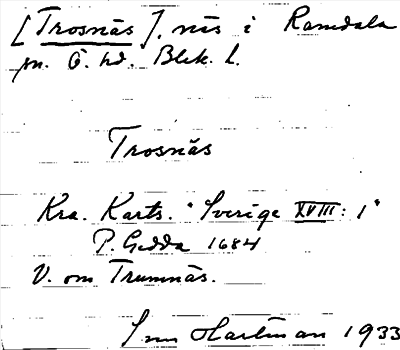 [Trosnäs], näs i Ramdala
sn. Ö. hd. Blek. l.
Trosnäs
Kra. Karts. "Sverige XVIII: 1"
P. Gedda 1684
V. om Trumnäs.
Hartman 1933